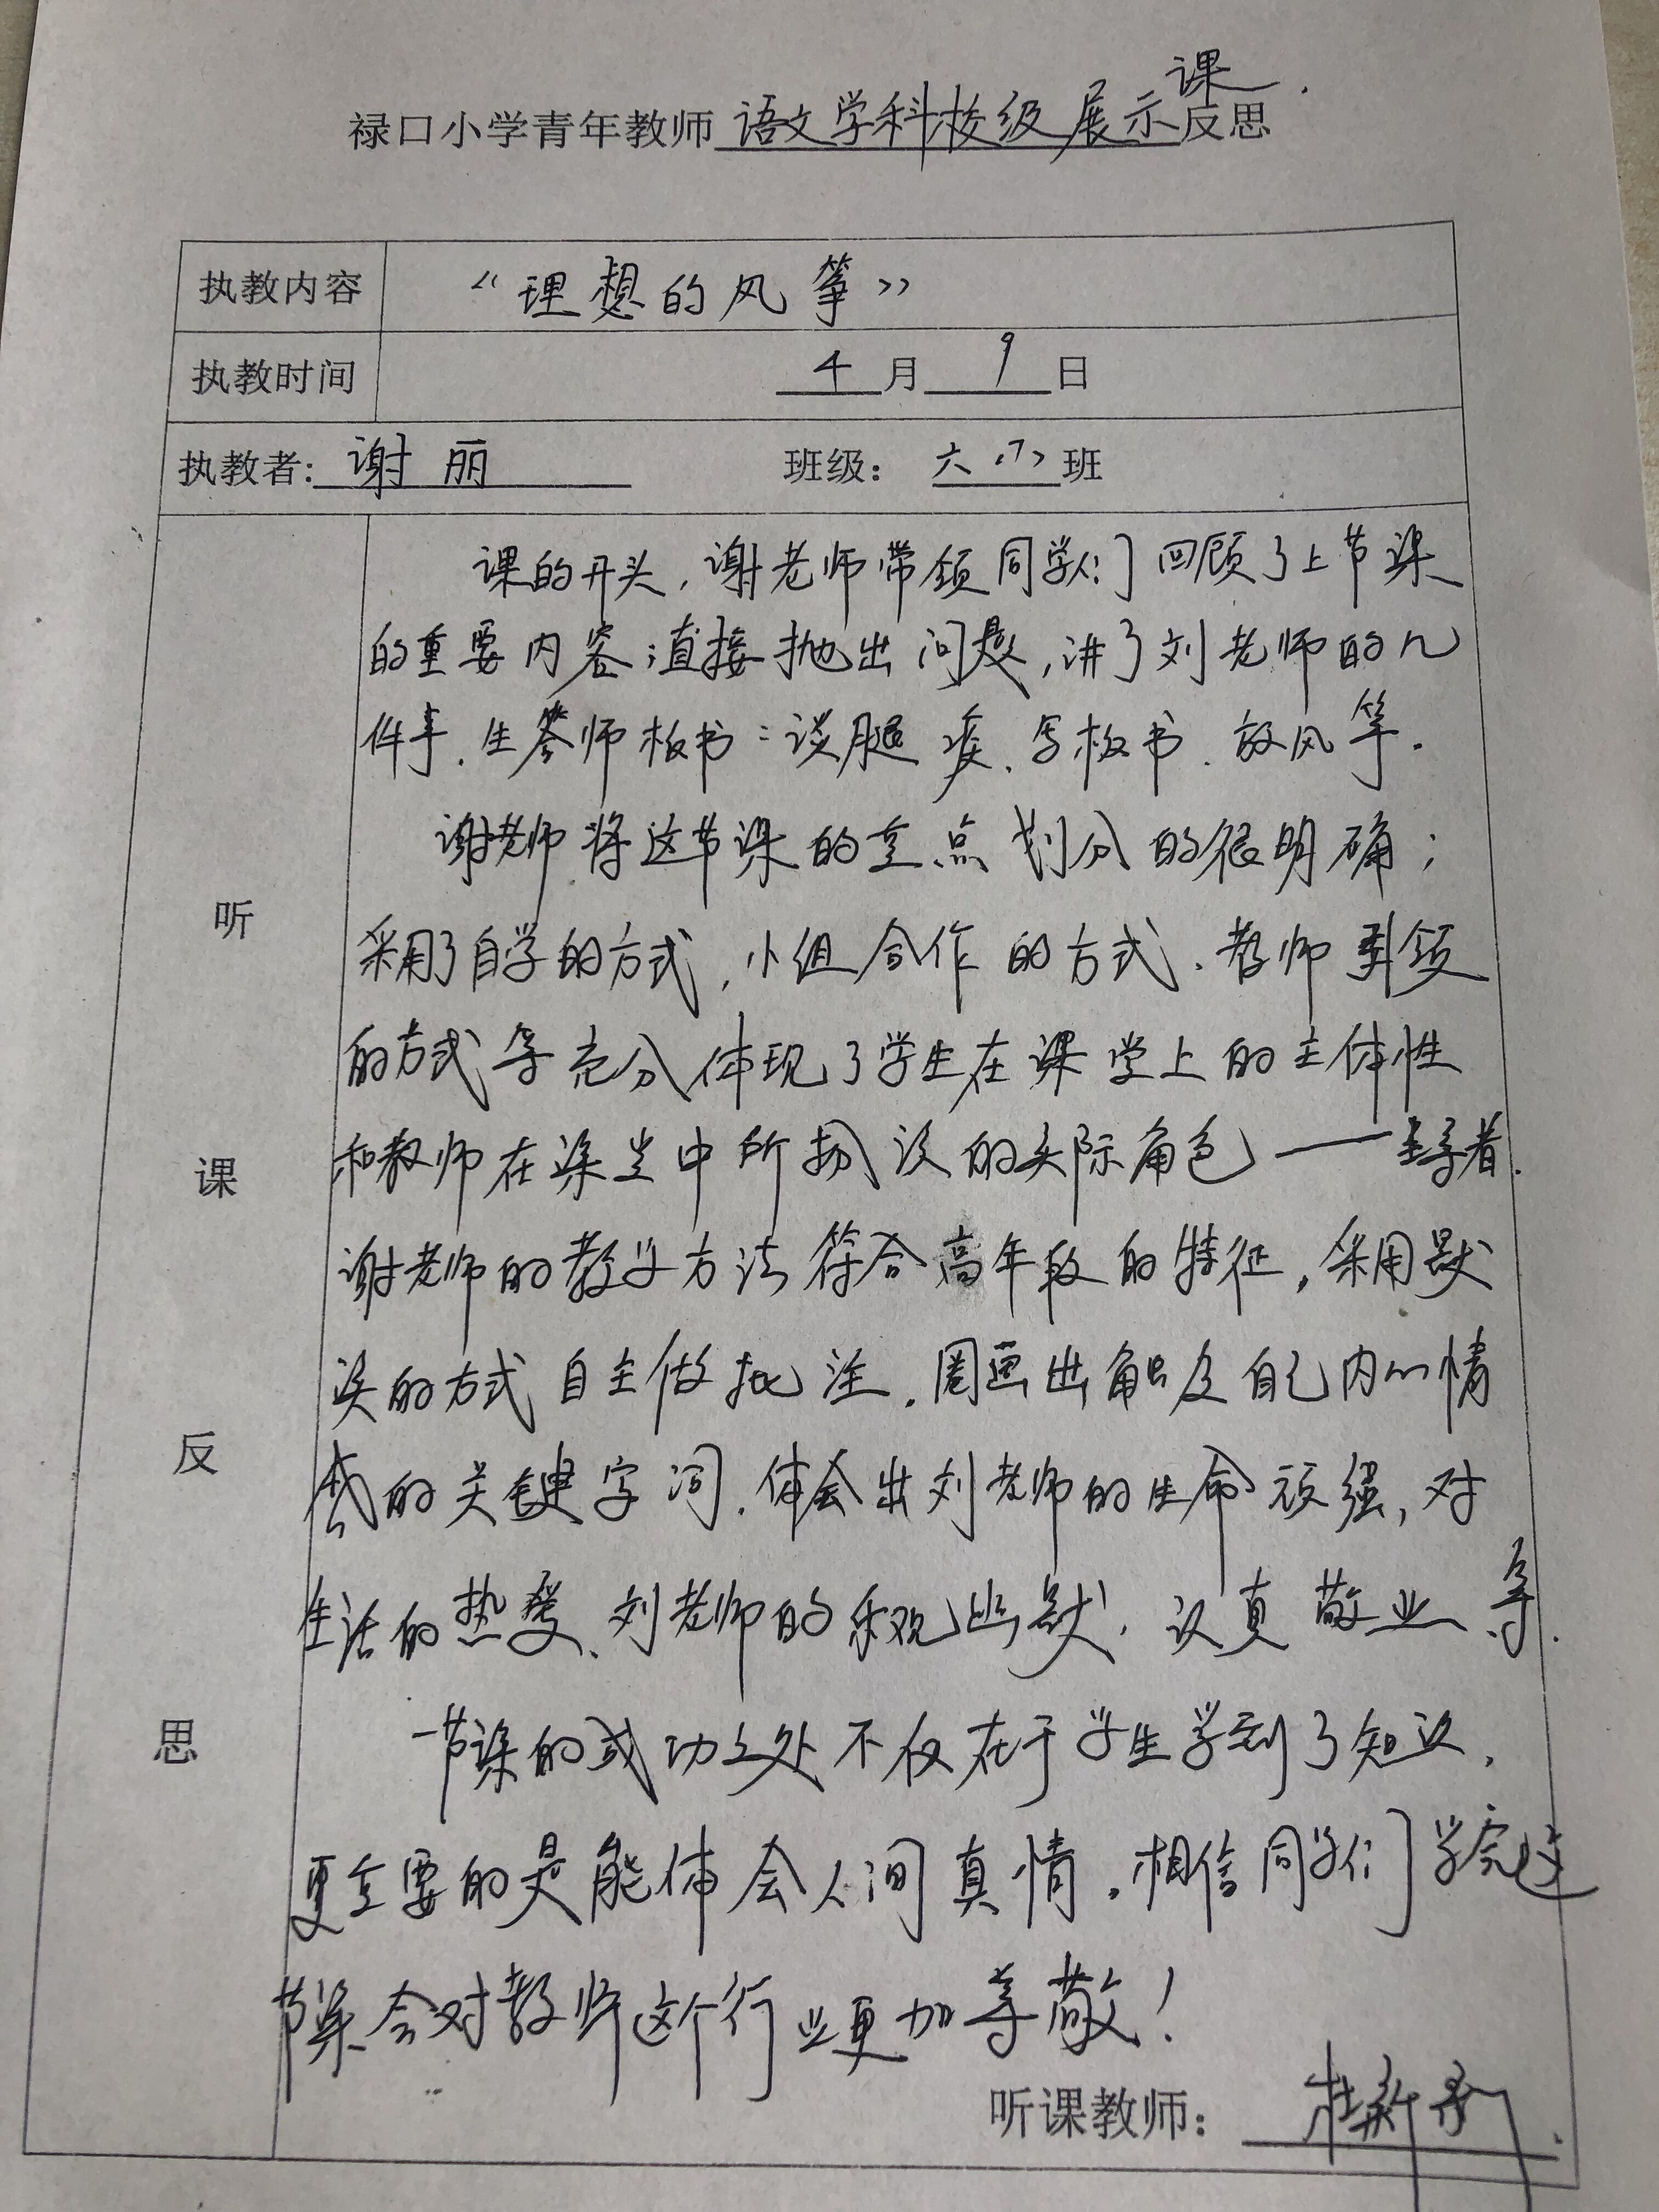 课.
禄口小学青年教师 语文学科校级展示 反思
执教内容 《理想的风筝》
执教时间 4 月 9 日
执教者: 谢丽 班级: 六(7) 班
听课反思
课的开头,谢老师带领同学们回顾了上节课
的重要内容;直接抛出问题,讲了刘老师的几
件事.生答师板书:谈腿疾、写板书、放风筝.
谢老师将这节课的重点划分的很明确;
采用了自学的方式,小组合作的方式、教师引领
的方式等充分体现了学生在课堂上的主体性
和教师在课堂中所扮演的实际角色——主导者.
谢老师的教学方法符合高年段的特征,采用默
读的方式自主做批注.圈画出触及自己内心情
感的关键字词.体会出刘老师的生命顽强,对
生活的热爱、刘老师的乐观幽默、认真敬业等.
一节课的成功之处不仅在于学生学到了知识,
更重要的是能体会人间真情。相信同学们学完这
节课会对教师这个行业更加尊敬!
听课教师: